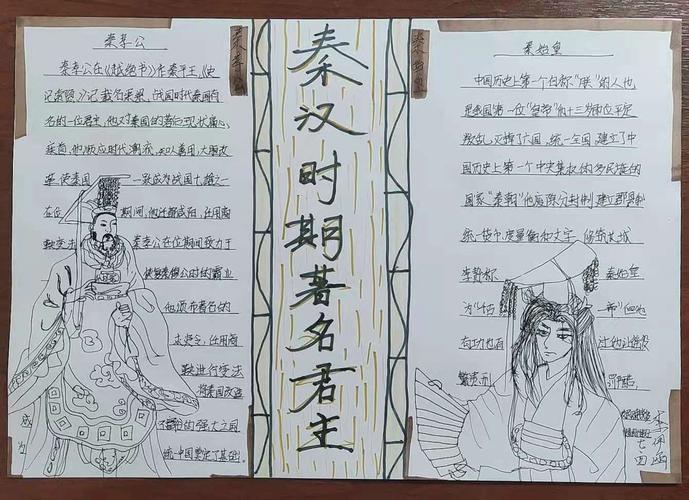 秦孝公
秦孝公在《越绝书》作秦平王,《史
记索隐》记载名渠梁,战国时代秦国有
名的一位君主,他对秦国的落后现状痛心
疾首,他顺应时代潮流,知人善用,大胆改
革,使秦国一跃成为战国七雄之一
在位期间,他迁都咸阳,任用商
鞅变法秦孝公在位期间致力于
恢复秦穆公时的霸业
他颁布著名的
求贤令,任用商
鞅进行变法
将秦国改造
的强大之国
统一中国奠定了基础。
秦孝公
秦汉时期著名君主
秦始皇
秦始皇
中国历史上第一个自称"朕"的人也
是我国第一位"皇帝"他十三岁即位平定
叛乱,灭掉了六国,统一全国,建立了中
国历史上第一个中央集权的多民族的
国家"秦朝"他废除分封制,建立郡县制
统一货币度量衡和文字,修筑长城
李贽称秦始皇
为"千古一帝"但他
有功也有过他
繁重刑